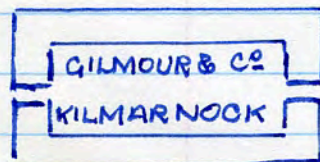 GILMOUR & Cº
KILMARNOCK